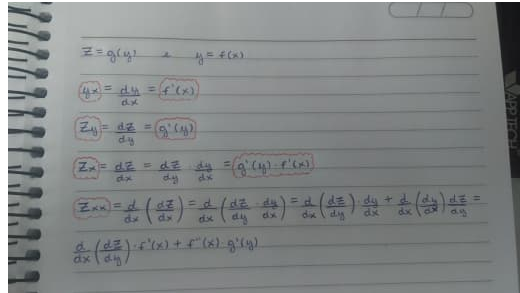 z = g(y) e y = f(x)
yx = dy/dx = f'(x)
Zy = dZ/dy = g'(y)
Zx = dZ/dx = dZ/dy · dy/dx = g'(y) · f'(x)
Zxx = d/dx (dZ/dx) = d/dx (dZ/dy · dy/dx) = d/dx (dZ/dy) · dy/dx + d/dx (dy/dx) dZ/dy =
d/dx (dZ/dy) · f'(x) + f''(x) · g'(y)